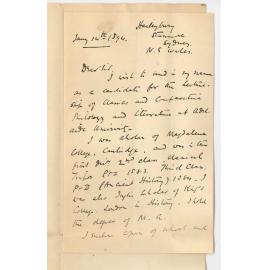 Haileybury
Stanmore
Jany 12th 1894. Sydney
N. S. Wales.
Dear Sir,
I wish to send in my name
as a candidate for the Lecture-
ship of Classics and Comparative
Philology and Literature at Adel-
aide University.
I was scholar of Magdalene
College, Cambridge, and was in the
first div. 2nd class, Classical
Tripos 1883. Third Class,
(Ancient History) 1884. I
was also Inglis Scholar of King's
College London in History. I hold
the degree of M. A.
I enclose copies of school and